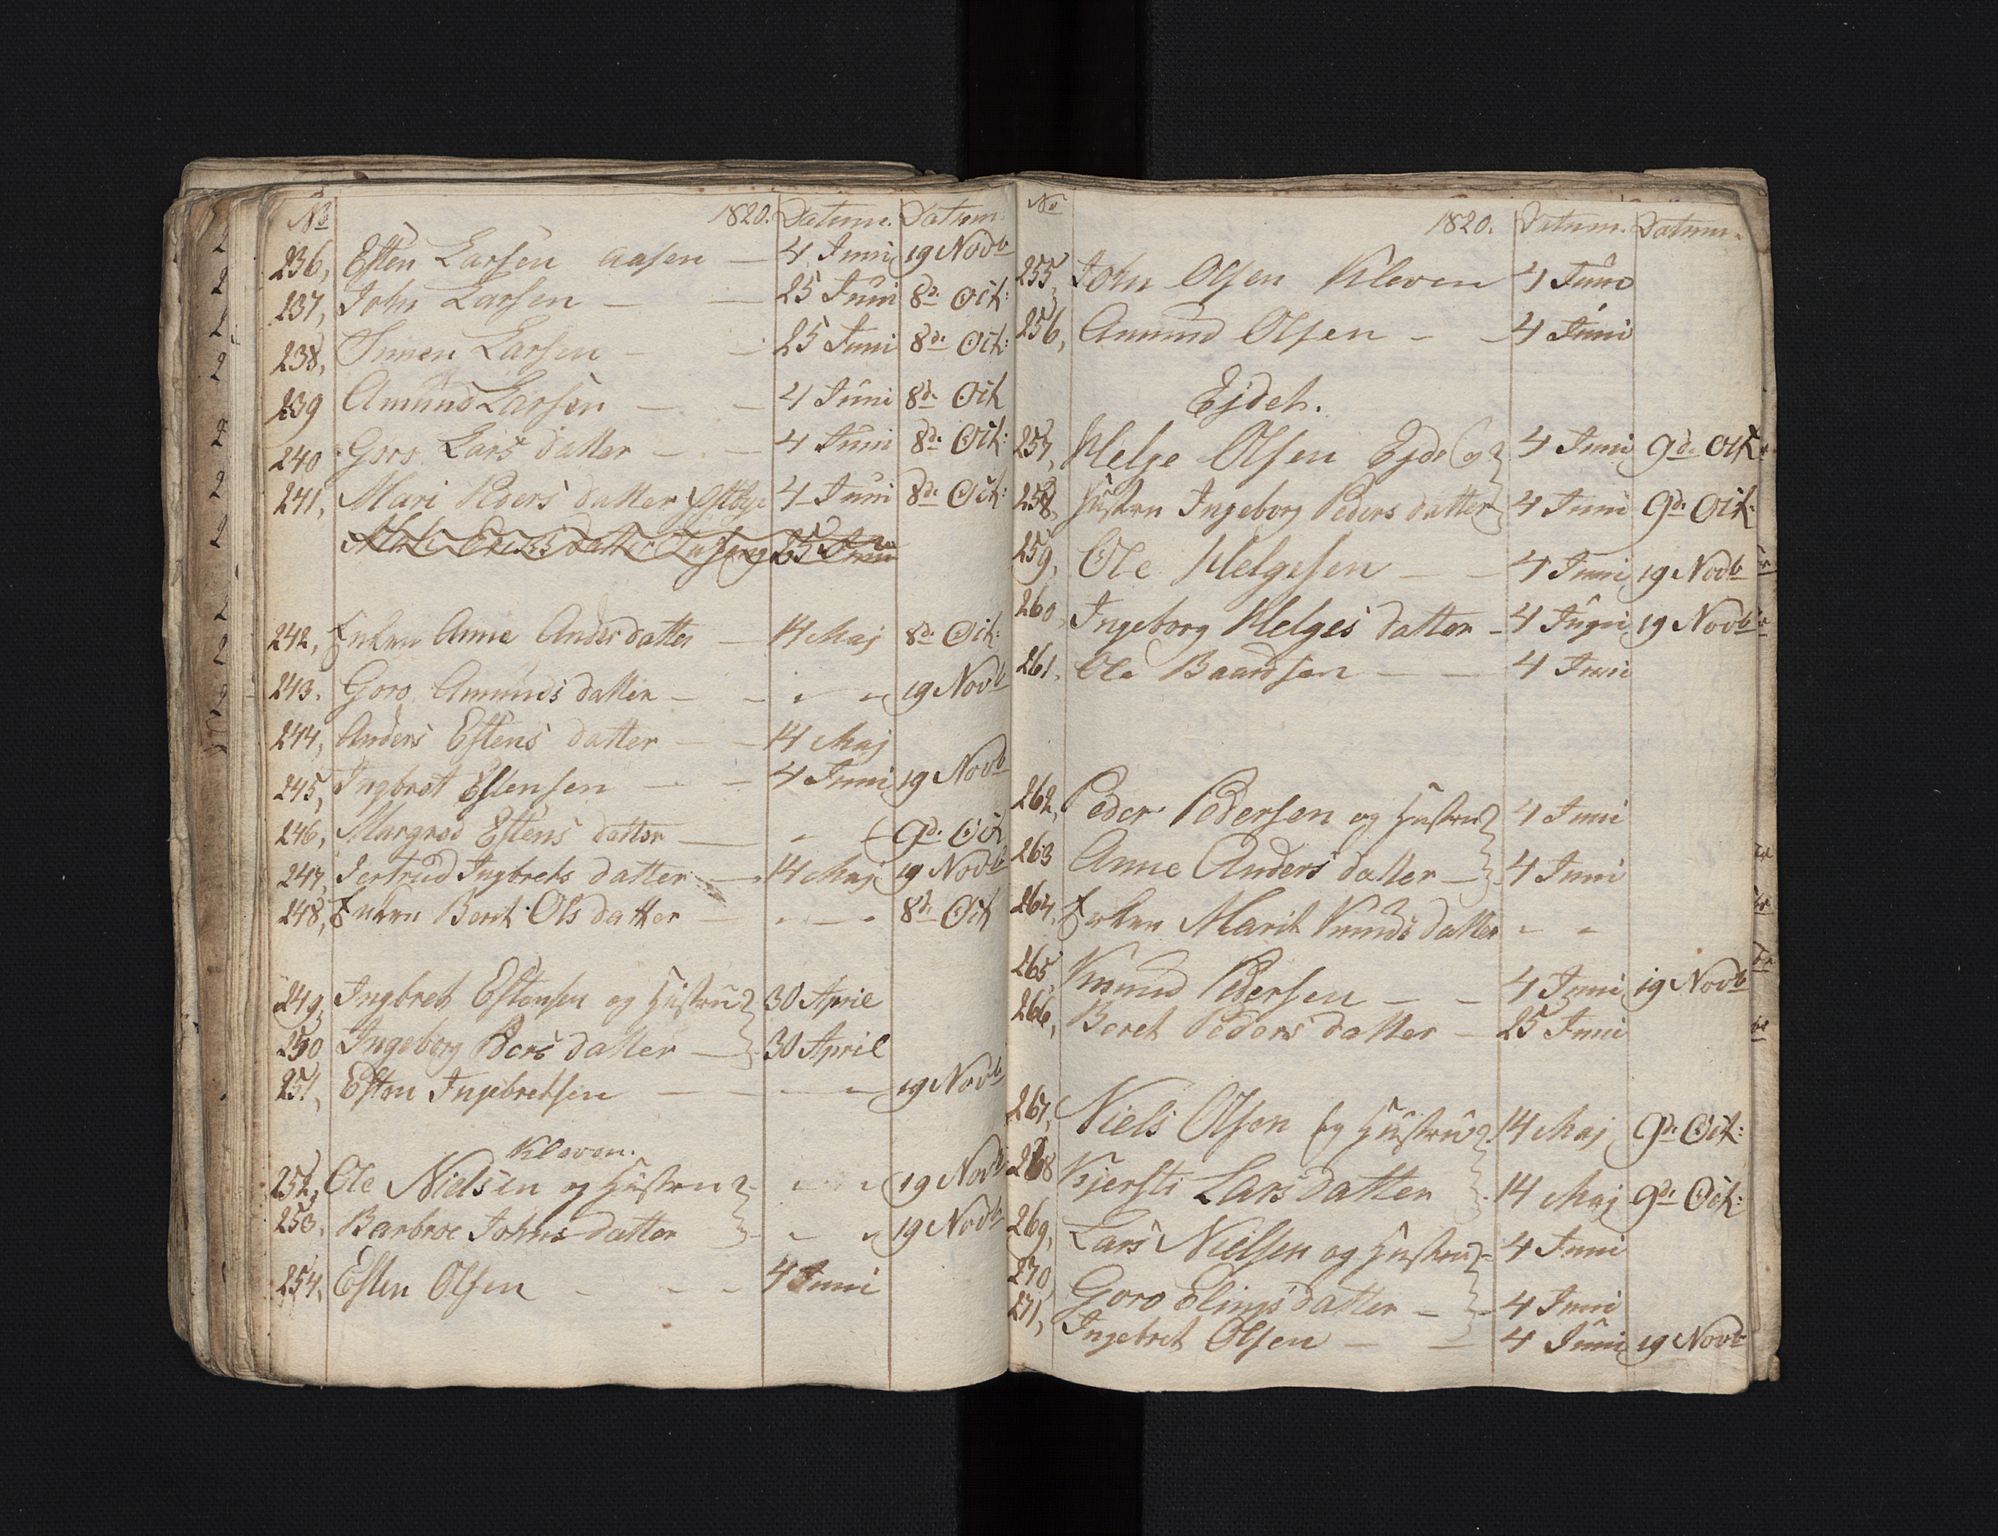 No 1820. Datum. Datum.
236, Esten Larsen Aasen — 4 Juni 19 Novb
237, John Larsen — — 25 Juni 8d. Oct:
238, Simen Larsen — — 25 Juni 8d. Oct:
239 Amund Larsen — — 4 Juni 8d. Oct
240 Goro Lars datter — — 4 Juni 8d. Oct:
241, Mari Peders datter Østbye 4 Juni 8d. Oct:
Eriks datter 25 Juni
242, Enken Anne Anders datter — 14 Maj 8d. Oct:
243. Goro Amunds datter — — " " 19 Novb
244, Anders Estens datter — — 14 Maj
245, Ingbret Estensen — — 4 Juni 19 Novb
246, Margred Estens datter — " 9d. Oct
247, Jertrud Ingbrets datter — 14 Maj 19 Novb
248, Enken Berit Ols datter — " " 8d. Oct
249, Ingbret Estensen og Hustru 30 April
250 Ingeborg Pders datter — 30 April
251, Esten Ingebretsen — — " 19 Novb
Kleven.
252, Ole Nielsen og Hustru " " 19 Novb
253. Barbroe Johns datter " " 19 Novb
254. Esten Olsen — — — 4 Juni
No 1820. Datum. Datum.
255, John Olsen Kleven 4 Juni
256, Amund Olsen — — 4 Juni
Ejdet.
257, Helge Olsen Ejde og 4 Juni 9d. Oct
258, Hustru Ingeborg Peders datter 4 Juni 9d. Oct:
259, Ole Helgesen — — 4 Juni 19 Novb
260, Ingeborg Helges datter — 4 Juni 19 Novb
261. Ole Baardsen — — 4 Juni
262, Peder Pedersen og Hustru 4 Juni
263 Anne Anders datter — 4 Juni
264, Enken Marit Knuds datter " "
265, Knund Pedersen — — 4 Juni 19 Novb
266, Beret Peders datter — 25 Juni
267, Niels Olsen og Hustru 14 Maj 9d. Oct:
268 Kjersti Lars datter 14 Maj 9d. Oct:
269, Lars Nielsen og Hustru 4 Juni
270 Goro Elings datter — 4 Juni
271, Ingebret Olsen — — 4 Juni 19 Novb